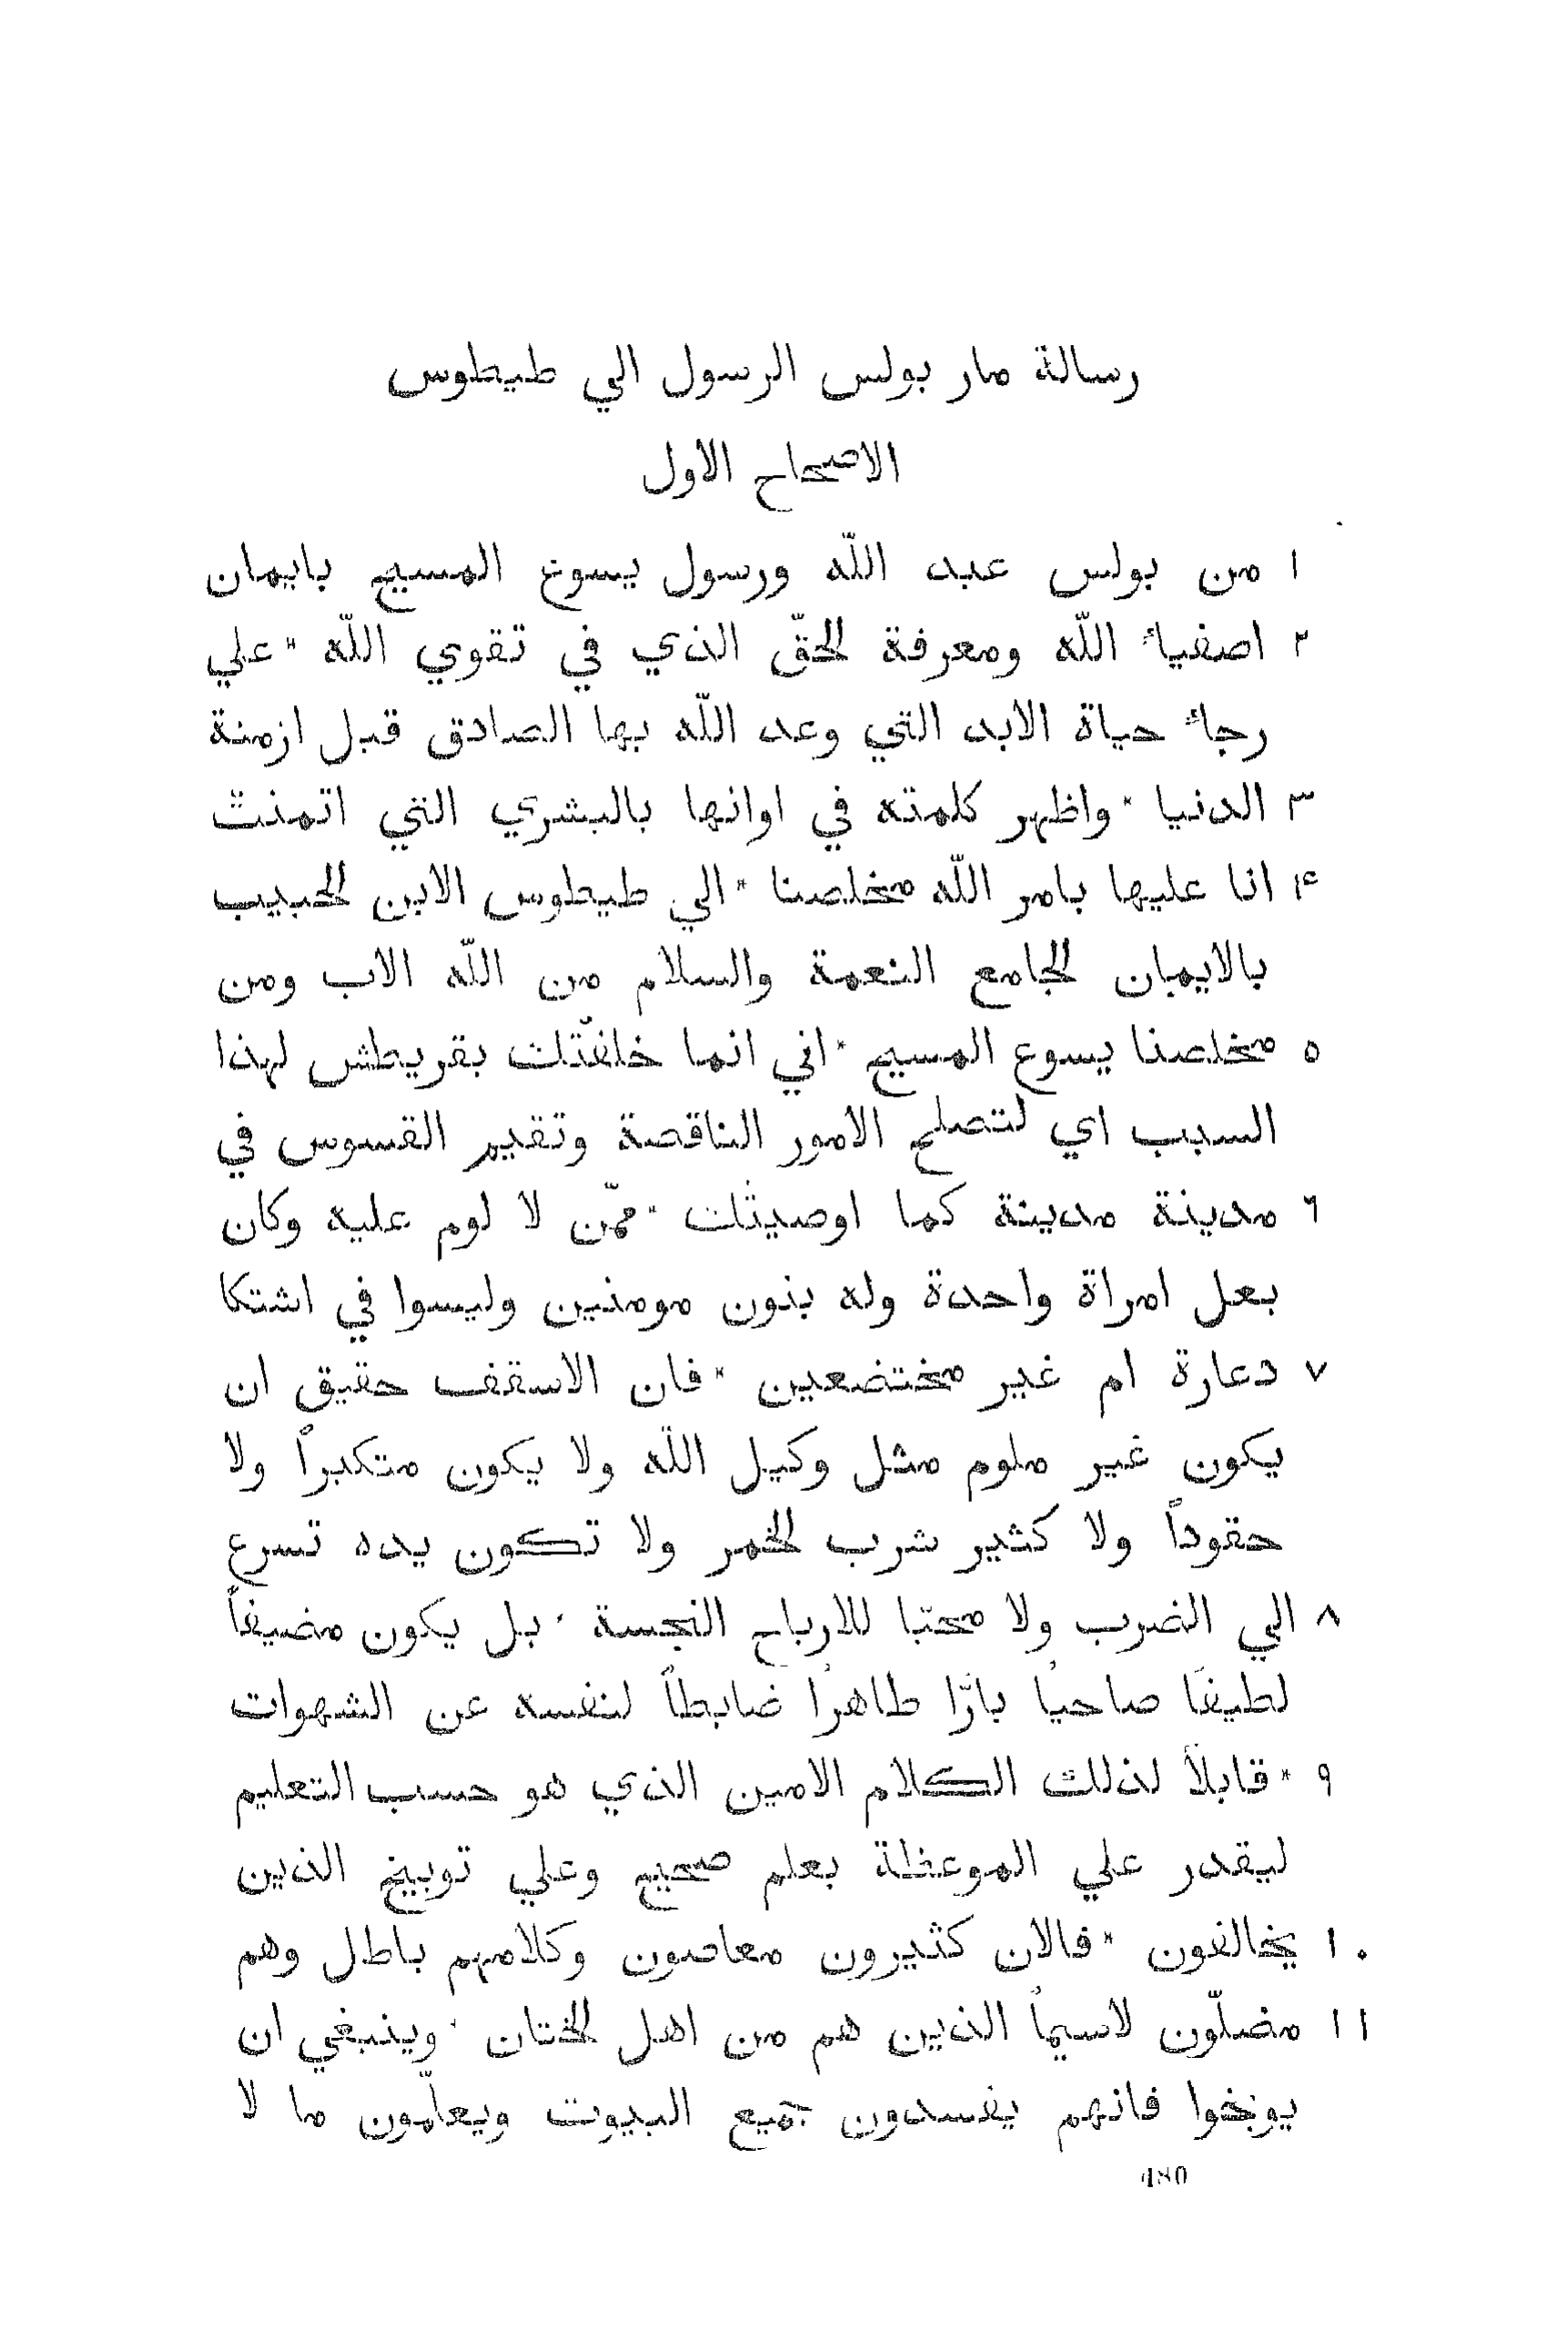 رسالة مار بولس الرسول الي طيطوس
الاصحاح الاول
١ من بولس عبد اللّه ورسول يسوع المسيح بايمان
٢ اصفياء اللّه ومعرفة الحقّ الذي في تقوي اللّه * علي
رجاء حياة الابد التي وعد اللّه بها الصادق قبل ازمنة
٣ الدنيا * واظهر كلمته في اوانها بالبشري التي اتمنت
۴ انا عليها بامر اللّه مخلصنا * الي طيطوس الابن الحبيب
بالايمان الجامع النعمة والسلام من اللّه الاب ومن
٥ مخلصنا يسوع المسيح * اني انما خلفتك بقريطش لهذا
السبب اي لتصلح الامور الناقصة وتقيم القسوس في
٦ مدينة مدينة كما اوصيتك * ممّن لا لوم عليه وكان
بعل امراة واحدة وله بنون مومنين وليسوا في اشتكا
٧ دعارة ام غير مختضعين * فان الاسقف حقيق ان
يكون غير ملوم مثل وكيل اللّه ولا يكون متكبراً ولا
حقوداً ولا كثير شرب الخمر ولا تكون يده تسرع
٨ الي الضرب ولا محتبا للارباح النجسة * بل يكون مضيفاً
لطيفًا صاحيًا بارّا طاهرًا ضابطاً لنفسه عن الشهوات
٩ * قابلاً لذلك الكلام الامين الذي هو حسب التعليم
ليقدر علي الموعظة بعلم صحيح وعلي توبيخ الذين
١٠ يخالفون * فالان كثيرون معاصون وكلامهم باطل وهم
١١ مضلّون لاسيماً الذين هم من اهل الختان * وينبغي ان
يوبخوا فانهم يفسدون جميع البيوت ويعلّمون ما لا